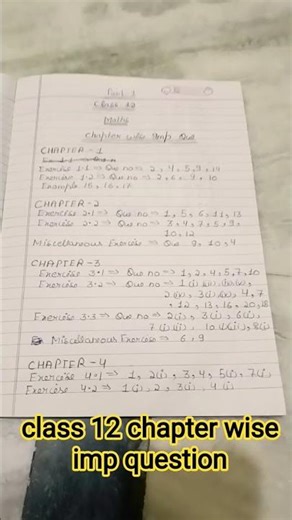 Part 1
Class 12
Maths
Chapter wise Imp Que
CHAPTER - 1
Exercise 1.1 ⇒ Que no ⇒ 2, 4, 5, 9, 14
Exercise 1.2 ⇒ Que no ⇒ 2, 6, 9, 10
Example 15, 16, 17
CHAPTER - 2
Exercise 2.1 ⇒ Que no ⇒ 1, 5, 6, 11, 13
Exercise 2.2 ⇒ Que no ⇒ 3, 4, 7, 5, 9,
10, 12
Miscellaneous Exercise ⇒ Que 9, 10, 4
CHAPTER - 3
Exercise 3.1 ⇒ Que no ⇒ 1, 2, 4, 5, 7, 10
Exercise 3.2 ⇒ Que no ⇒ 1(i)
4, 7
, 12, 13, 16, 20, 18
Exercise 3.3 ⇒ Que no ⇒ 2(i), 3(i), 6(i),
7(i)(ii)
Miscellaneous Exercise ⇒ 6, 9
CHAPTER - 4
Exercise 4.1 ⇒ 1, 2(i), 3, 4, 5(i), 7(i)
Exercise 4.2 ⇒ 1(i), 2, 3(i), 4(i)
class 12 chapter wise
imp question